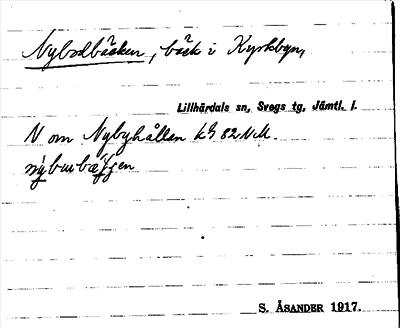 Nybodbäcken, bäck i Kyrkbyn,
Lillhärdals sn, Svegs tg, Jämtl. l.
N om Nybyhållan kbl 82 N.M.
S. ÅSANDER 1917.